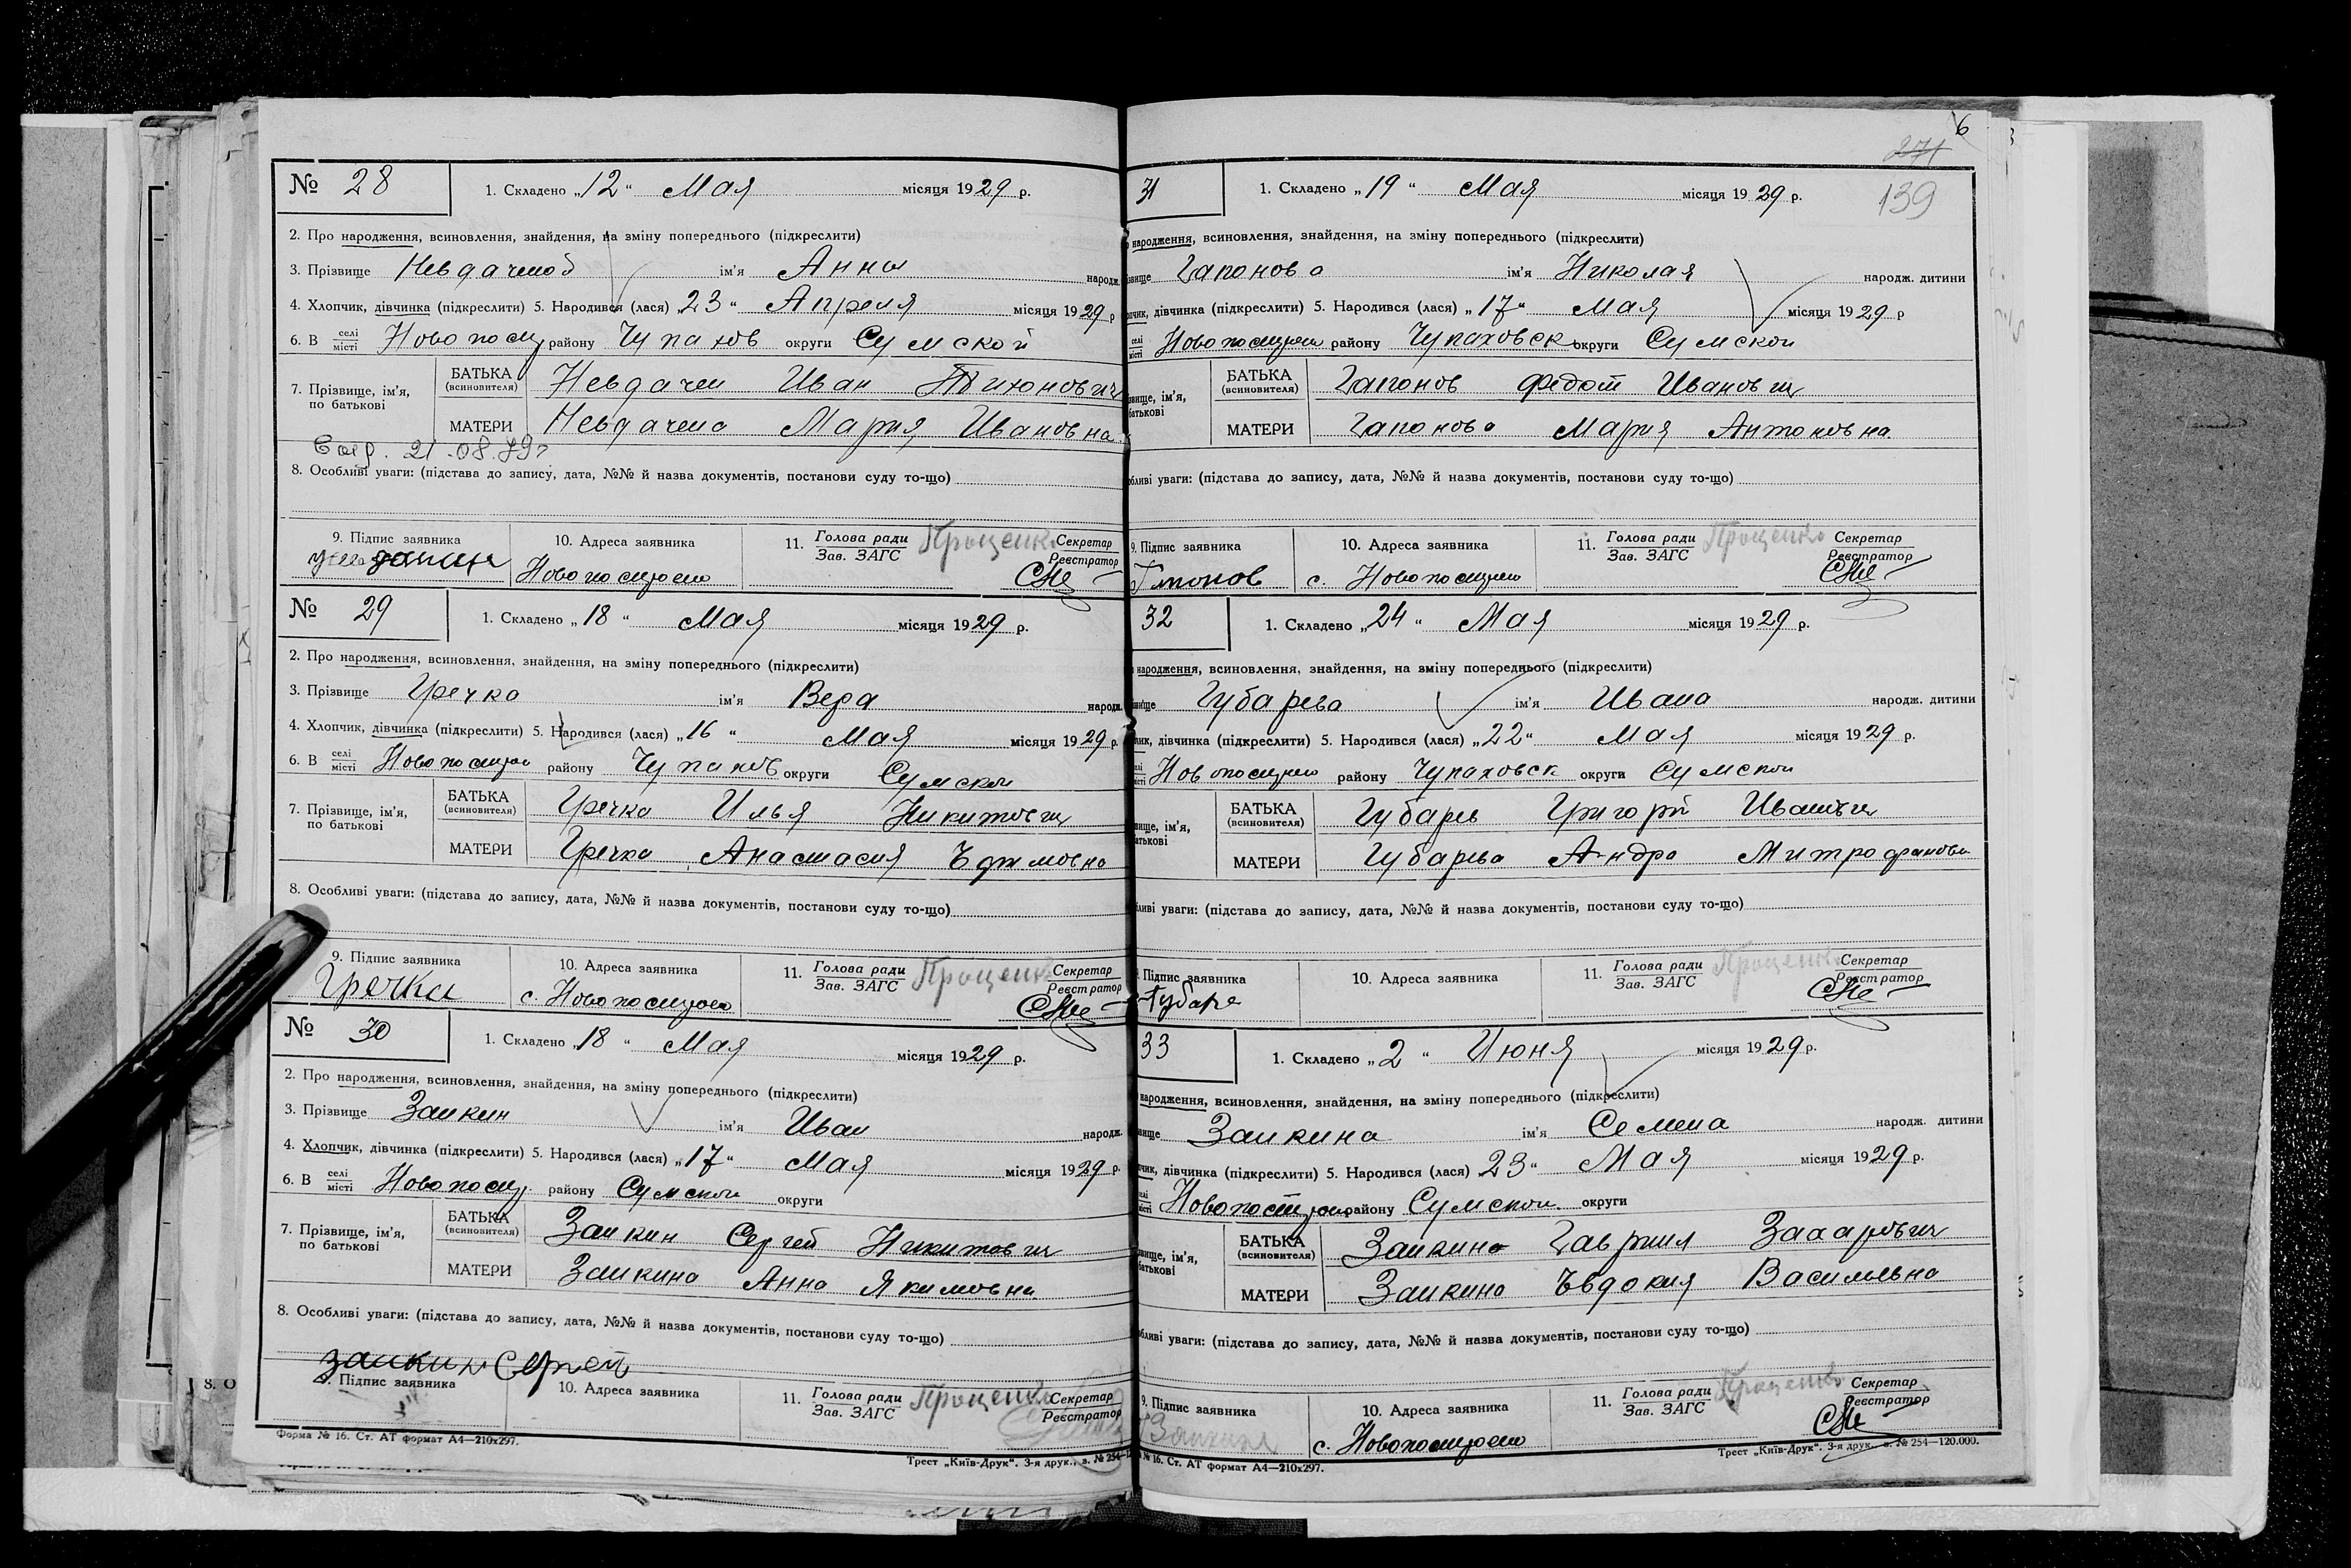 № 28
1. Складено „12“ Мая місяця 1929 р.
2. Про народження, всиновлення, знайдення, на зміну попереднього (підкреслити)
3. Прізвище ім'я Анны народж.
4. Хлопчик, дівчинка (підкреслити) 5. Народився (лася) „23“ Апреля місяця 1929 р
6. В селі місті Новопост району Чупахов округи Сумской
7. Прізвище, ім'я, по батькові
БАТЬКА (всиновителя) Иван Тихонович
МАТЕРИ Мария Ивановна
21.08.
8. Особливі уваги: (підстава до запису, дата, №№ й назва документів, постанови суду то-що)
9. Підпис заявника
10. Адреса заявника Новопостроено
11. Голова ради Зав. ЗАГС Проценко Секретар Реєстратор
№ 29
1. Складено „18“ Мая місяця 1929 р.
2. Про народження, всиновлення, знайдення, на зміну попереднього (підкреслити)
3. Прізвище Гречка ім'я Вера народж.
4. Хлопчик, дівчинка (підкреслити) 5. Народився (лася) „16“ Мая місяця 1929 р.
6. В селі місті Новопострое району Чупахов округи Сумской
7. Прізвище, ім'я, по батькові
БАТЬКА (всиновителя) Гречка Илья Никитович
МАТЕРИ Гречка Анастасия Ефимовна
8. Особливі уваги: (підстава до запису, дата, №№ й назва документів, постанови суду то-що)
9. Підпис заявника Гречка
10. Адреса заявника с. Новопостроено
11. Голова ради Зав. ЗАГС Проценко Секретар Реєстратор
№ 30
1. Складено „18“ Мая місяця 1929 р.
2. Про народження, всиновлення, знайдення, на зміну попереднього (підкреслити)
3. Прізвище Заикин ім'я Иван народж.
4. Хлопчик, дівчинка (підкреслити) 5. Народився (лася) „17“ Мая місяця 1929 р.
6. В селі місті Новопост району Сумской округи
7. Прізвище, ім'я, по батькові
БАТЬКА (всиновителя) Заикин Сергей Никитович
МАТЕРИ Заикина Анна Якимовна
8. Особливі уваги: (підстава до запису, дата, №№ й назва документів, постанови суду то-що)
Заикин Сергей
9. Підпис заявника
10. Адреса заявника
11. Голова ради Зав. ЗАГС Проценко Секретар Реєстратор
Форма № 16. Ст. АТ формат А4—210х297.
Трест „Київ-Друк“. 3-я друк., з. № 254—12
6
271
139
31
1. Складено „19“ Мая місяця 1929 р.
народження, всиновлення, знайдення, на зміну попереднього (підкреслити)
звище Гапонова ім'я Николая народж. дитини
пчик, дівчинка (підкреслити) 5. Народився (лася) „17“ Мая місяця 1929 р
селі місті Новопостроено району Чупаховск округи Сумской
звище, ім'я, батькові
БАТЬКА (всиновителя) Гапонов Федот Иванович
МАТЕРИ Гапонова Мария Антоновна
обливі уваги: (підстава до запису, дата, №№ й назва документів, постанови суду то-що)
9. Підпис заявника
10. Адреса заявника с. Новопостроено
11. Голова ради Зав. ЗАГС Проценко Секретар Реєстратор
32
1. Складено „24“ Мая місяця 1929 р.
народження, всиновлення, знайдення, на зміну попереднього (підкреслити)
звище Губарева ім'я Ивана народж. дитини
чик, дівчинка (підкреслити) 5. Народився (лася) „22“ Мая місяця 1929 р.
селі місті Новопостроено району Чупаховск округи Сумской
звище, ім'я, батькові
БАТЬКА (всиновителя) Губарев Григорий Иванович
МАТЕРИ Губарева Митрофановн
бливі уваги: (підстава до запису, дата, №№ й назва документів, постанови суду то-що)
Підпис заявника Губаре
10. Адреса заявника
11. Голова ради Зав. ЗАГС Проценко Секретар Реєстратор
33
1. Складено „2“ Июня місяця 1929 р.
народження, всиновлення, знайдення, на зміну попереднього (підкреслити)
звище Заикина ім'я Семена народж. дитини
пчик, дівчинка (підкреслити) 5. Народився (лася) 23“ Мая місяця 1929 р.
селі місті Новопостроено району Сумской округи
звище, ім'я, батькові
БАТЬКА (всиновителя) Заикина Гавриил Захарович
МАТЕРИ Заикина Евдокия Васильевна
обливі уваги: (підстава до запису, дата, №№ й назва документів, постанови суду то-що)
9. Підпис заявника
10. Адреса заявника с. Новопостроено
11. Голова ради Зав. ЗАГС Проценко Секретар Реєстратор
№ 16. Ст. АТ формат А4—210х297.
Трест „Київ-Друк“. 3-я друк., з. № 254—120.000.